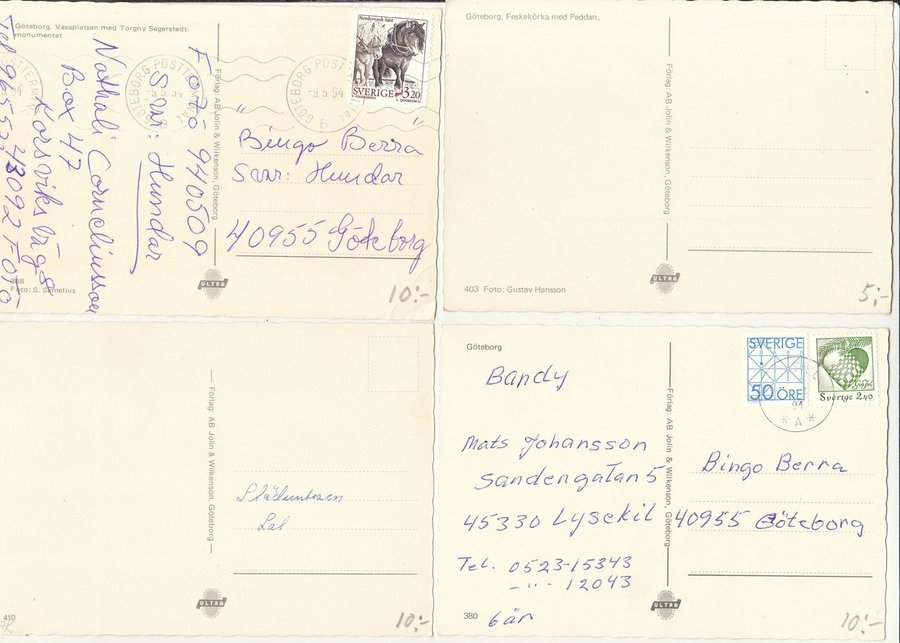 Göteborg. Vasaplatsen med Torgny Segerstedt-
monumentet
Nordsvensk häst
SVERIGE 3.20
GÖTEBORG POSTTERMINAL
-9.5.94
Foto 940509
Svar: Hundar
Nathali Corneliusson
Box 47
Korsviks lägg
43092 Fotö
Tel 96552
"Bingo Berra"
Svar: Hundar
40955 Göteborg
Förlag: AB Jolin & Wilkenson, Göteborg
ULTRA
Foto: S. Samelius
10:-
Göteborg, Feskekörka med Paddan.
Förlag: AB Jolin & Wilkenson, Göteborg
ULTRA
403 Foto: Gustav Hansson
5:-
Förlag: AB Jolin & Wilkenson, Göteborg
Lal
ULTRA
410
10:-
Göteborg
SVERIGE
50 ÖRE
God Jul
Sverige 2.40
94
* A *
Bandy
Mats Johansson
Sandengatan 5
45330 Lysekil
Tel. 0523-15343
-"- 12043
6 år
Förlag: AB Jolin & Wilkenson, Göteborg
Bingo Berra
40955 Göteborg
ULTRA
380
10:-